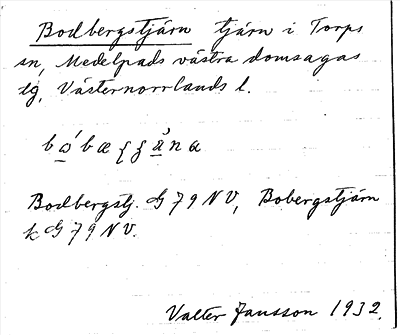 Bodbergstjärn tjärn i Torps
sn, Medelpads västra domsagas
tg, Västernorrlands l.
Bodbergstj. G 79 NV, Bobergstjärn
k G 79 NV.
Valter Jansson 1932.